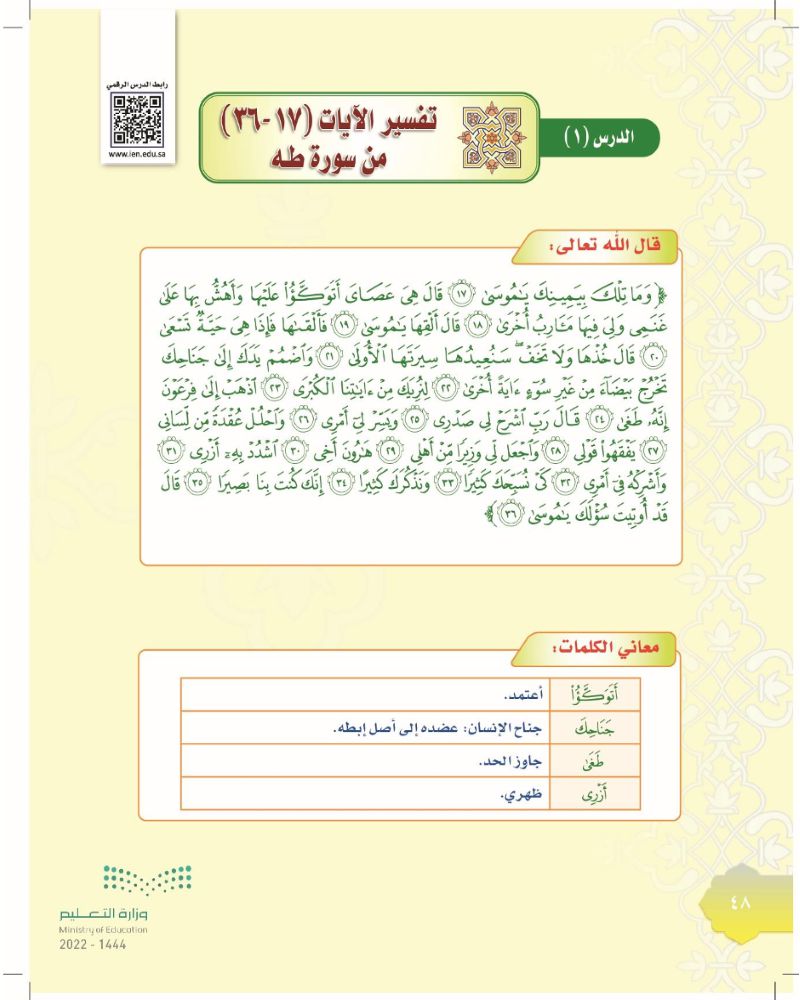 رابط الدرس الرقمي
www.ien.edu.sa
الدرس (١)
تفسير الآيات (١٧-٣٦)
من سورة طه
قال الله تعالى:
﴿ وَمَا تِلْكَ بِيَمِينِكَ يَٰمُوسَىٰ ١٧ قَالَ هِىَ عَصَاىَ أَتَوَكَّؤُا۟ عَلَيْهَا وَأَهُشُّ بِهَا عَلَىٰ
غَنَمِى وَلِىَ فِيهَا مَـَٔارِبُ أُخْرَىٰ ١٨ قَالَ أَلْقِهَا يَٰمُوسَىٰ ١٩ فَأَلْقَىٰهَا فَإِذَا هِىَ حَيَّةٌ تَسْعَىٰ
٢٠ قَالَ خُذْهَا وَلَا تَخَفْ ۖ سَنُعِيدُهَا سِيرَتَهَا ٱلْأُولَىٰ ٢١ وَٱضْمُمْ يَدَكَ إِلَىٰ جَنَاحِكَ
تَخْرُجْ بَيْضَآءَ مِنْ غَيْرِ سُوٓءٍ ءَايَةً أُخْرَىٰ ٢٢ لِنُرِيَكَ مِنْ ءَايَٰتِنَا ٱلْكُبْرَى ٢٣ ٱذْهَبْ إِلَىٰ فِرْعَوْنَ
إِنَّهُۥ طَغَىٰ ٢٤ قَالَ رَبِّ ٱشْرَحْ لِى صَدْرِى ٢٥ وَيَسِّرْ لِىٓ أَمْرِى ٢٦ وَٱحْلُلْ عُقْدَةً مِّن لِّسَانِى
٢٧ يَفْقَهُوا۟ قَوْلِى ٢٨ وَٱجْعَل لِّى وَزِيرًا مِّنْ أَهْلِى ٢٩ هَٰرُونَ أَخِى ٣٠ ٱشْدُدْ بِهِۦٓ أَزْرِى ٣١
وَأَشْرِكْهُ فِىٓ أَمْرِى ٣٢ كَىْ نُسَبِّحَكَ كَثِيرًا ٣٣ وَنَذْكُرَكَ كَثِيرًا ٣٤ إِنَّكَ كُنتَ بِنَا بَصِيرًا ٣٥ قَالَ
قَدْ أُوتِيتَ سُؤْلَكَ يَٰمُوسَىٰ ٣٦ ﴾
معاني الكلمات:
أَتَوَكَّؤُا۟ أعتمد.
جَنَاحِكَ جناح الإنسان: عضده إلى أصل إبطه.
طَغَىٰ جاوز الحد.
أَزْرِى ظهري.
وزارة التعـليم
Ministry of Education
2022 - 1444
٤٨